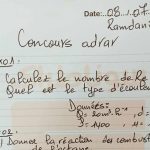 Date: 08.1.07
Ramdani
Concours adrar
x01:
Calculez le nombre de Re
Quel est le type d'écoule
Données:
1400
-02-
1) Donnez la réaction de combust